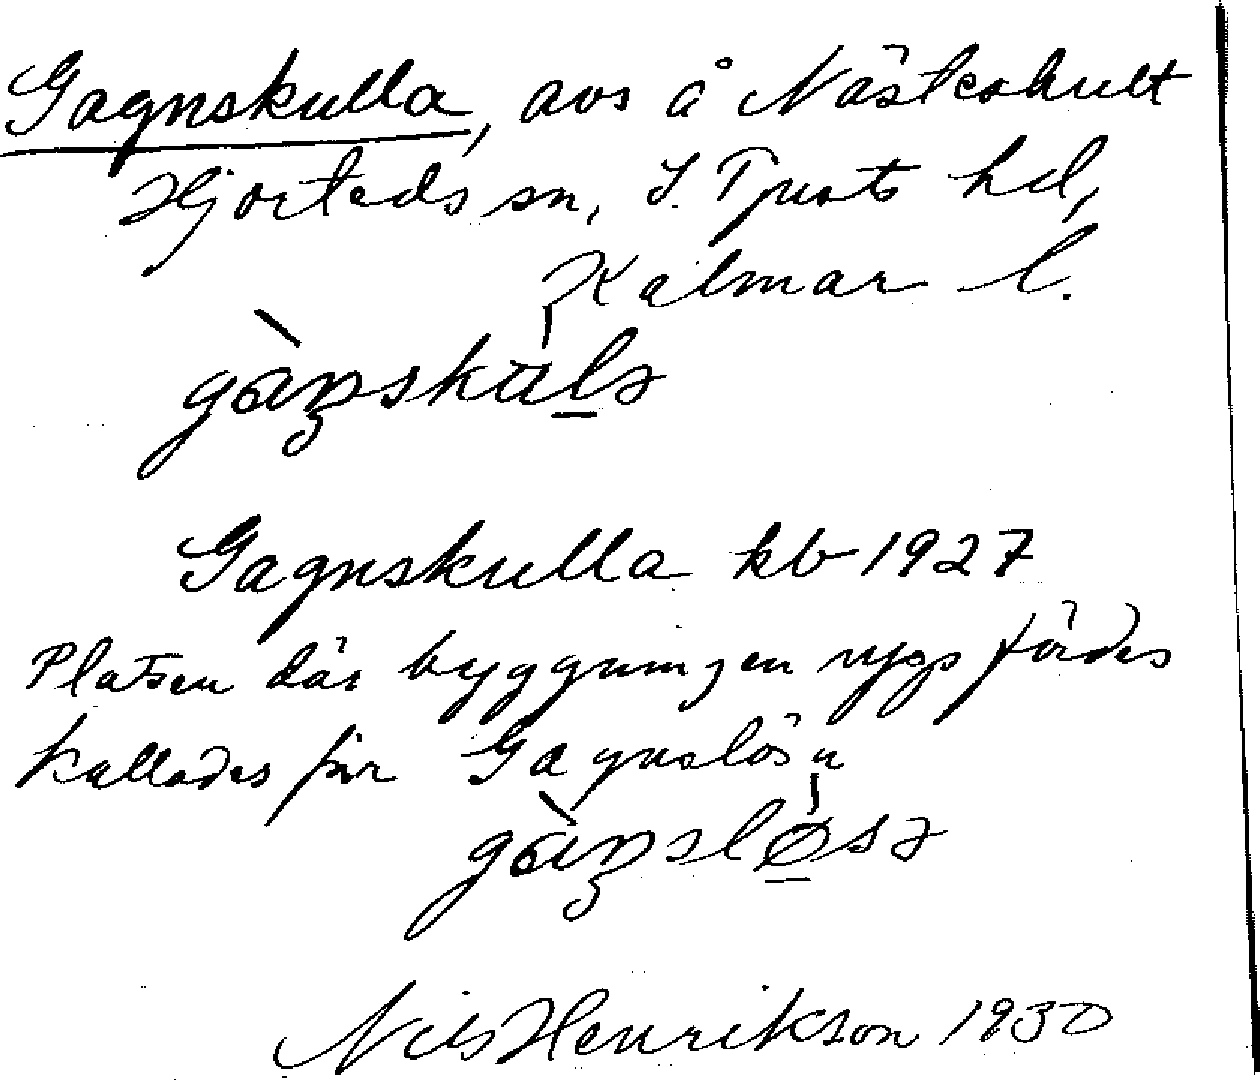 Gagnskulla, avs å Nästeskult
Hjorteds sn, S. Tjusts hd,
Kalmar l.
Gagnskulla kb 1927
Platsen där byggningen uppfördes
kallades förr Gagnslösa
Nils Henrikson 1930